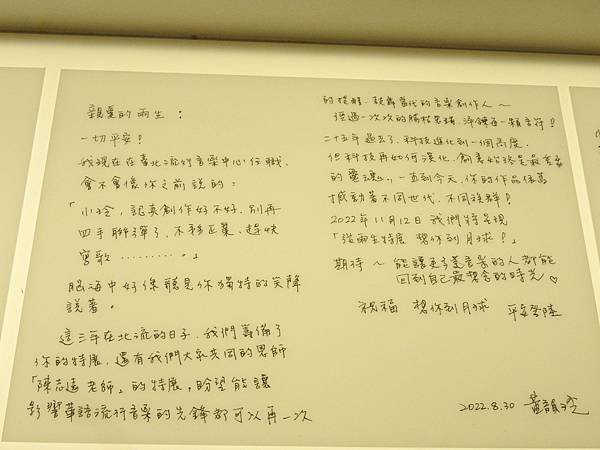 親愛的雨生：
一切平安！
我現在在臺北流行音樂中心任職，
會不會像你之前說的：
「小玲，認真創作好不好，別再
四手聯彈了，不務正業、趕快
寫歌………。」
腦海中好像聽見你獨特的笑聲
說著。
這三年在北流的日子，我們籌備了
你的特展，還有我們大家共同的恩師
「陳志遠老師」的特展，盼望能讓
影響華語流行音樂的先鋒都可以再一次
的提醒、鼓舞當代的音樂創作人～
經過一次次的腸枯思竭，淬鍊每一顆音符！
二十五年過去了，科技進化到一個高度，
但科技再如何演化，創意始終是最重要
的靈魂，一直到今天，你的作品依舊
撼動著不同世代、不同族群！
2022年11月12日 我們特呈現
「張雨生特展 想你到月球！」
期待～ 能讓更多愛音樂的人都能
回到自己最想念的時光♡
祝福 想你到月球 平安登陸
2022.8.30 黃韻玲